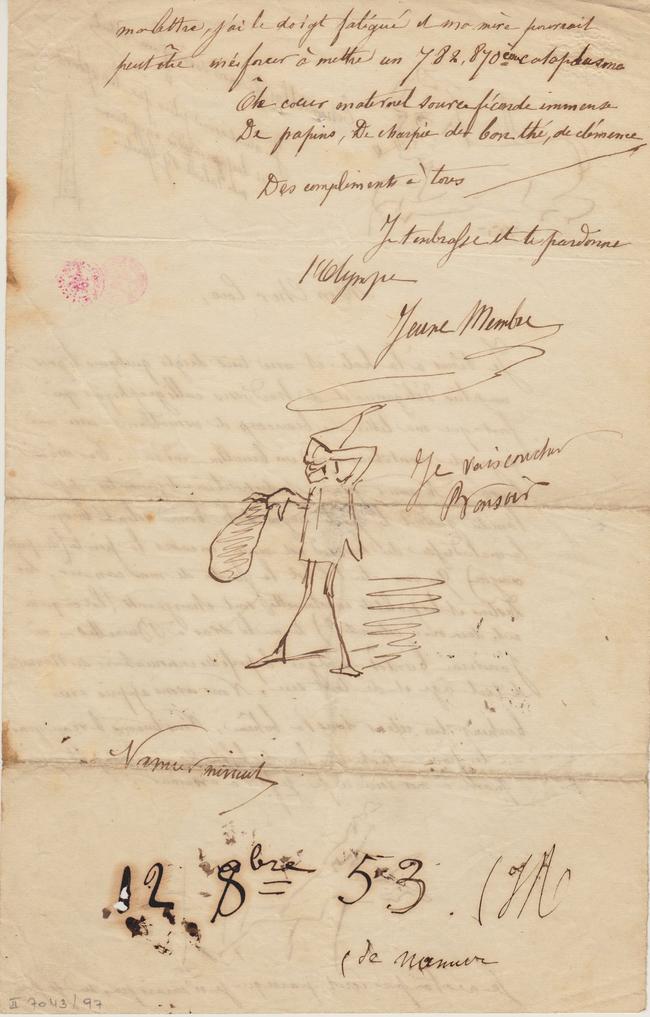 ma lettre, j'ai le doigt fatigué et ma mère pourrait
peut être m'esforcer à mettre un 782,870ème cataplasme
Oh cœur maternel source féconde immense
De papins, De charpie de bon thé, de clémence
Des compliments à tous
Je t'embrasse et te pardonne
l'Olympe
Jeune Membre
Je vais coucher
Bonsoir
Namur minuit
12 8bre 53.
(de Namur
II 7043/97